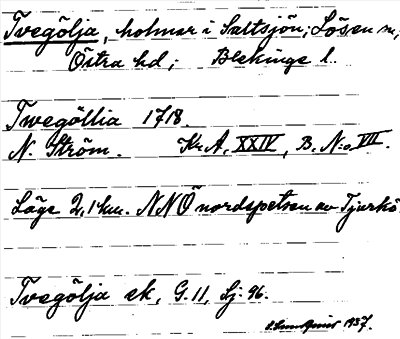 Tvegölja, holmar i Saltsjön; Lösen sn;
Östra hd; Blekinge l.
Twegöllia 1718.
N. Ström. Kr. A. XXIV, B. N:o VII.
Läge 2,1 km. NNÖ nordspetsen av Tjurkö.
Tvegölja ek, G. 11, Lj. 96.
1937.